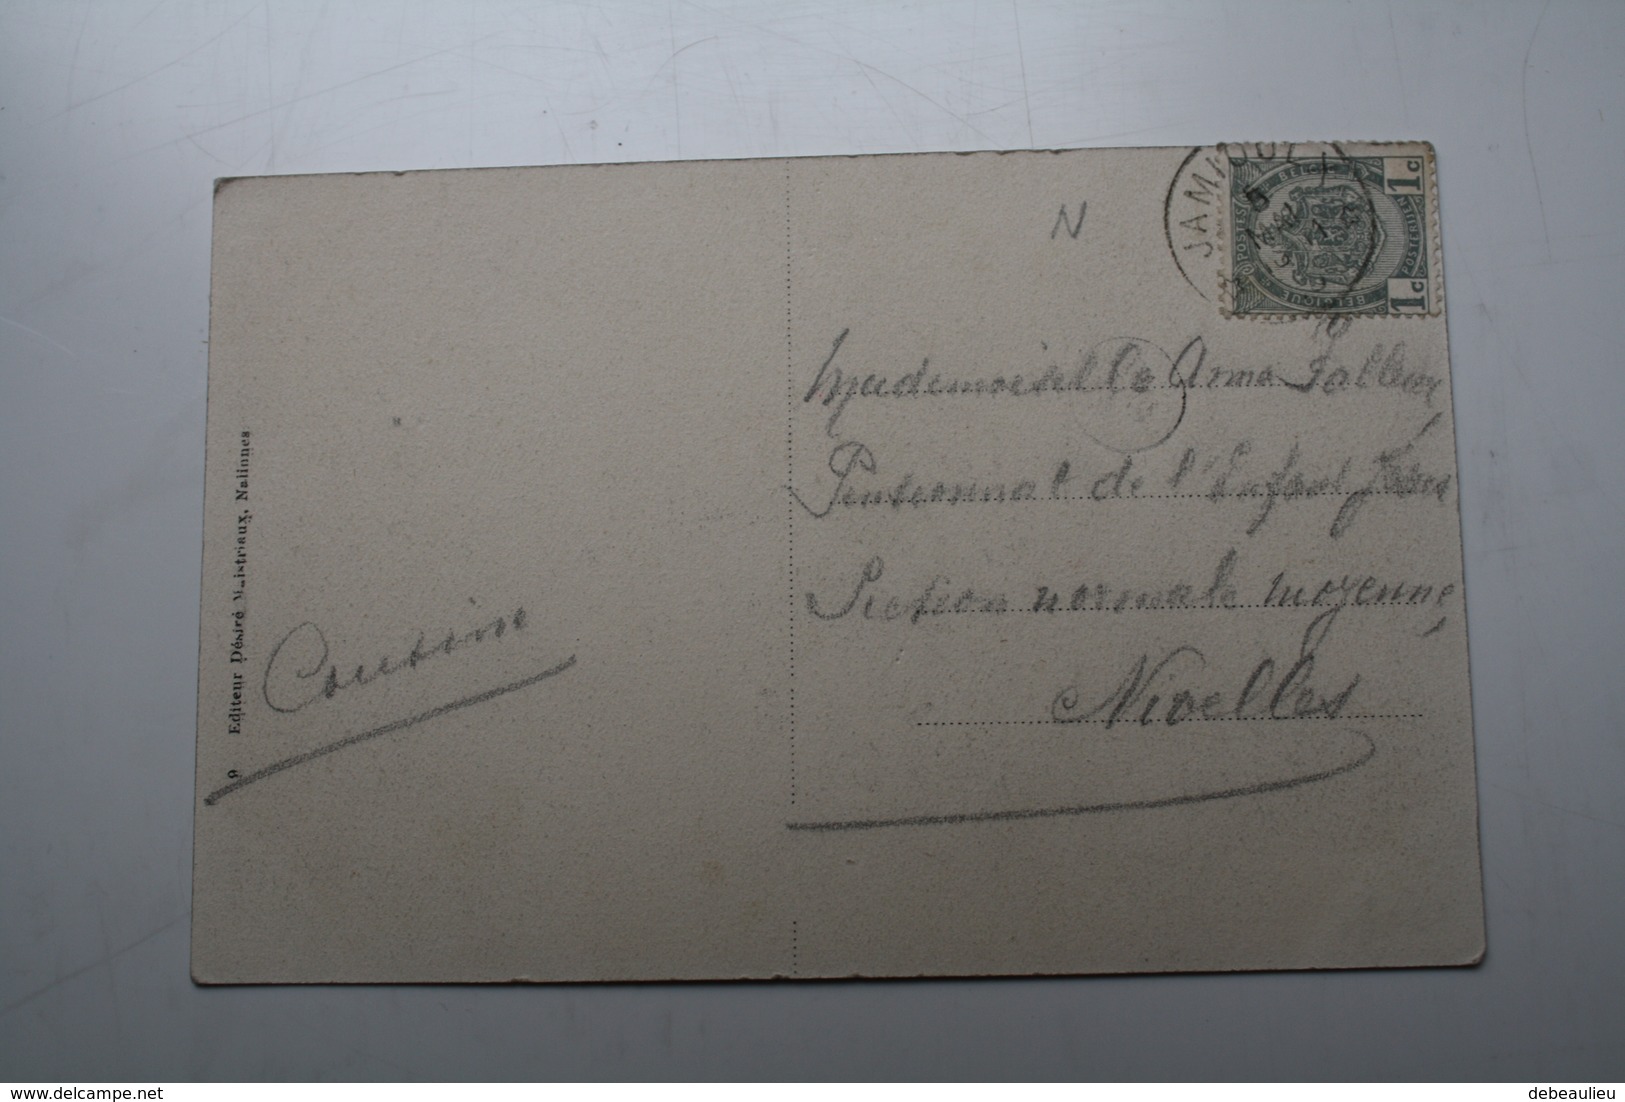 9 Editeur Désiré Maistriaux, Nalinnes
Cousine
N
JAMIOULX
5
1 c
1 c
POSTES
POSTERIJEN
BELGIË
BELGIQUE
Mademoiselle Anna Falleur
Pensionnat de l'Enfant Jésus
Section normale moyenne
Nivelles
delcampe.net
debeaulieu